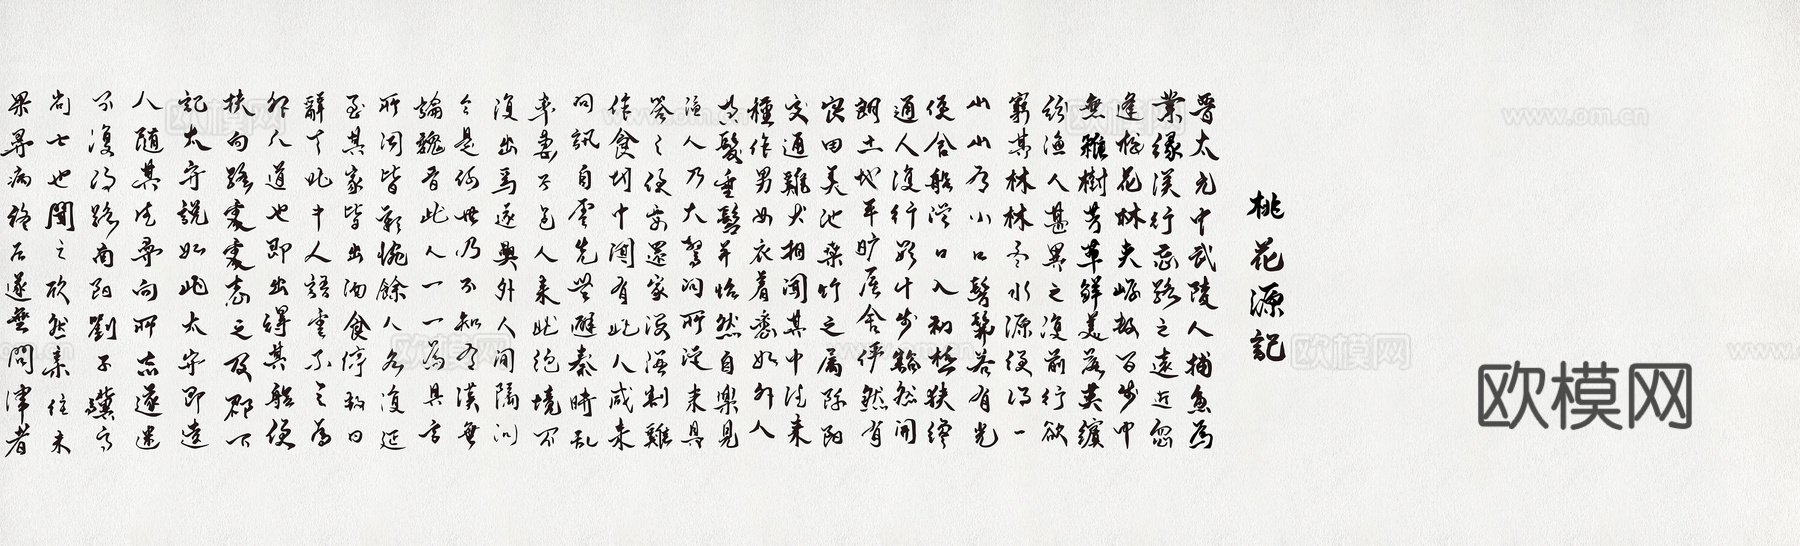 桃花源記
晉太元中武陵人捕魚為
業緣溪行忘路之遠近忽
逢桃花林夾岸數百步中
無雜樹芳草鮮美落英繽
紛漁人甚異之復前行欲
窮其林林盡水源便得一
山山有小口髣髴若有光
便舍船從口入初極狹纔
通人復行數十步豁然開
朗土地平曠屋舍儼然有
良田美池桑竹之屬阡陌
交通雞犬相聞其中往來
種作男女衣着悉如外人
黃髮垂髫並怡然自樂見
漁人乃大驚問所從來具
答之便要還家設酒殺雞
作食村中聞有此人咸來
問訊自雲先世避秦時亂
率妻子邑人來此絕境不
復出焉遂與外人間隔問
今是何世乃不知有漢無
論魏晉此人一一為具言
所聞皆歎惋餘人各復延
至其家皆出酒食停數日
辭去此中人語雲不足為
外人道也既出得其船便
扶向路處處志之及郡下
詣太守說如此太守即遣
人隨其往尋向所志遂迷
不復得路南陽劉子驥高
尚士也聞之欣然親往未
果尋病終後遂無問津者
欧模网
欧模网
www.om.cn
欧模网
www.om.cn
欧模网
www.om.cn
欧模网
www.om.cn